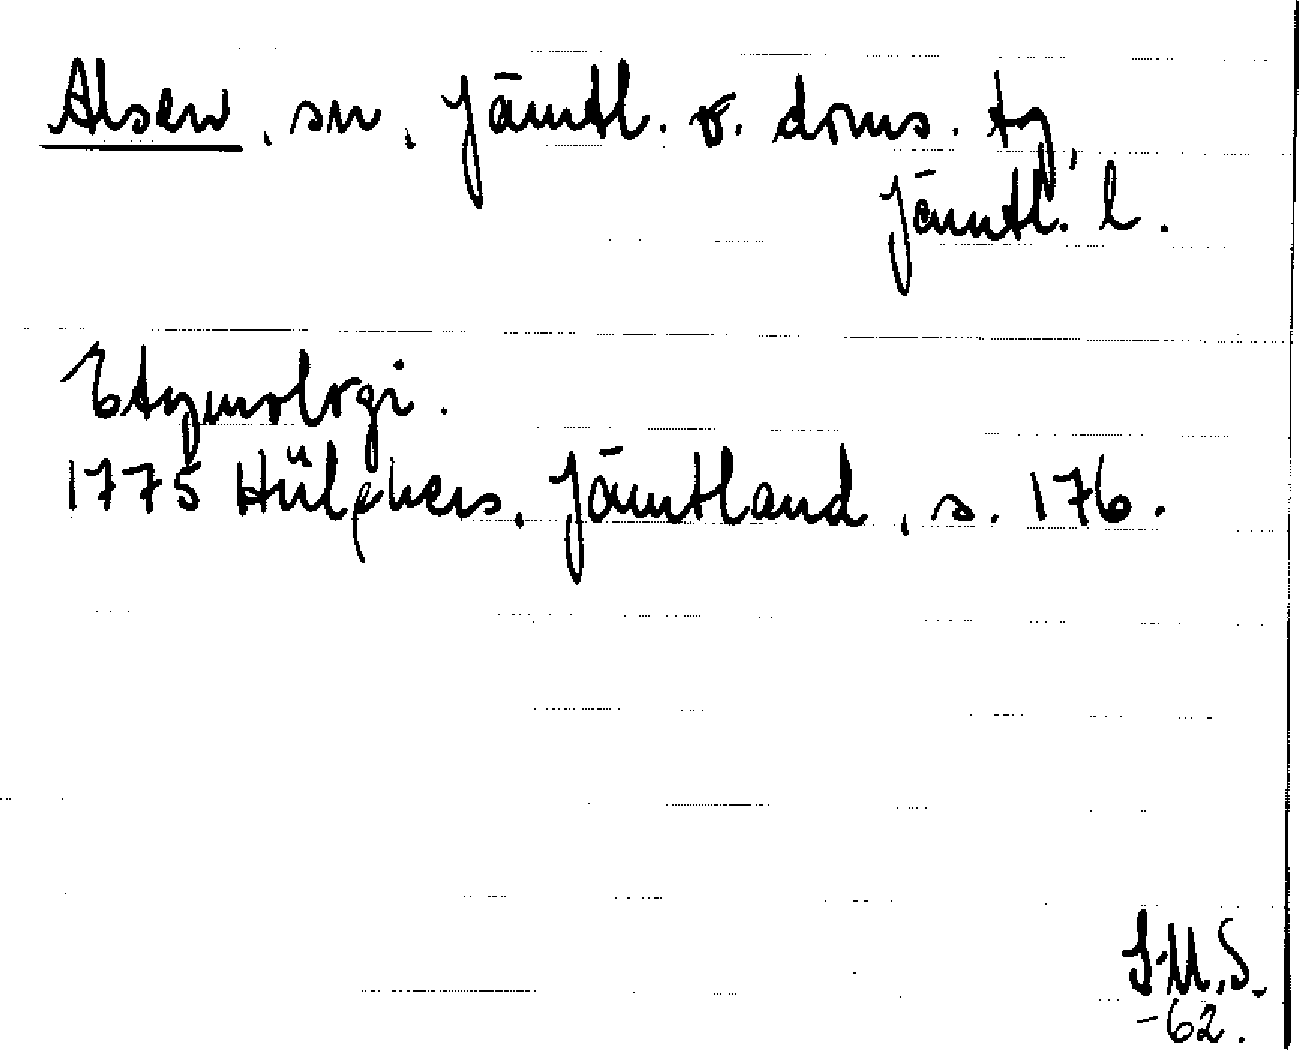 Alsen, sn, Jämtl. v. doms. tg,
Jämtl. l.
Etymologi.
1775 Hülphers, Jämtland, s. 176.
S.M.S.
-62.